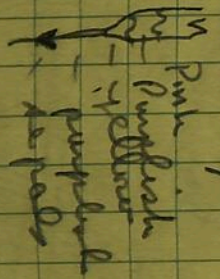 Pink
Purplish
yellow
purplish
sepals